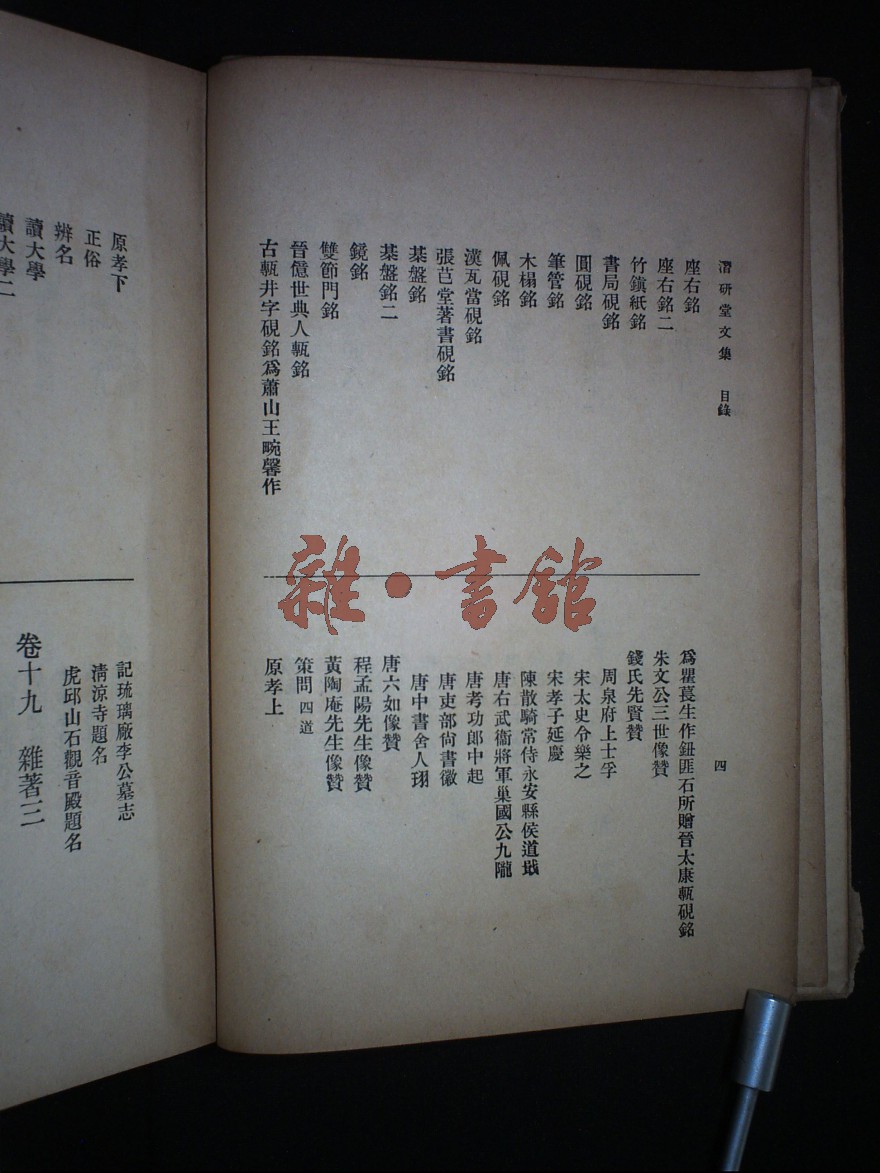 潛研堂文集　目錄
四
座右銘
座右銘二
竹鎭紙銘
書局硯銘
圓硯銘
筆管銘
木榻銘
佩硯銘
漢瓦當硯銘
張芑堂著書硯銘
棊盤銘
棊盤銘二
鏡銘
雙節門銘
晉億世典人甎銘
古甎井字硯銘爲蕭山王畹馨作
爲瞿萇生作鈕匪石所贈晉太康甎硯銘
朱文公三世像贊
錢氏先賢贊
周泉府上士孚
宋太史令樂之
宋孝子延慶
陳散騎常侍永安縣侯道戢
唐右武衞將軍巢國公九隴
唐考功郞中起
唐吏部尙書徽
唐中書舍人珝
唐六如像贊
程孟陽先生像贊
黃陶庵先生像贊
策問四道
原孝上
雜·書館
原孝下
正俗
辨名
讀大學
讀大學二
記琉璃廠李公墓志
淸涼寺題名
虎邱山石觀音殿題名
卷十九　雜著三